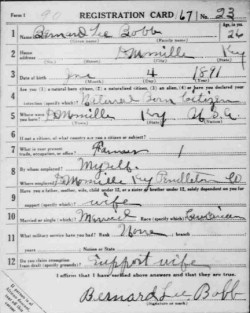 Form 1
REGISTRATION CARD 67 No. 23
1 Name Bernard Lee Bobb Age, in yrs. 26
2 Home address Demossville Ky
3 Date of birth 4 1891
(Month) (Day) (Year)
4 Are you (1) a natural-born citizen, (2) a naturalized citizen, (3) an alien, (4) or have you declared your intention (specify which)? Natural Born Citizen
5 Where were you born? Demossville Ky U.S.A
(Town) (State) (Nation)
6 If not a citizen, of what country are you a citizen or subject?
7 What is your present trade, occupation, or office? Farmer
8 By whom employed? Myself
Where employed? Demossville Ky Pendleton Co
9 Have you a father, mother, wife, child under 12, or a sister or brother under 12, solely dependent on you for support (specify which)? wife
10 Married or single (which)? Married Race (specify which)? Caucasian
11 What military service have you had? Rank None
years Nation or State
12 Do you claim exemption from draft (specify grounds)? Support wife
I affirm that I have verified above answers and that they are true.
Bernard Lee Bobb
(Signature or mark)